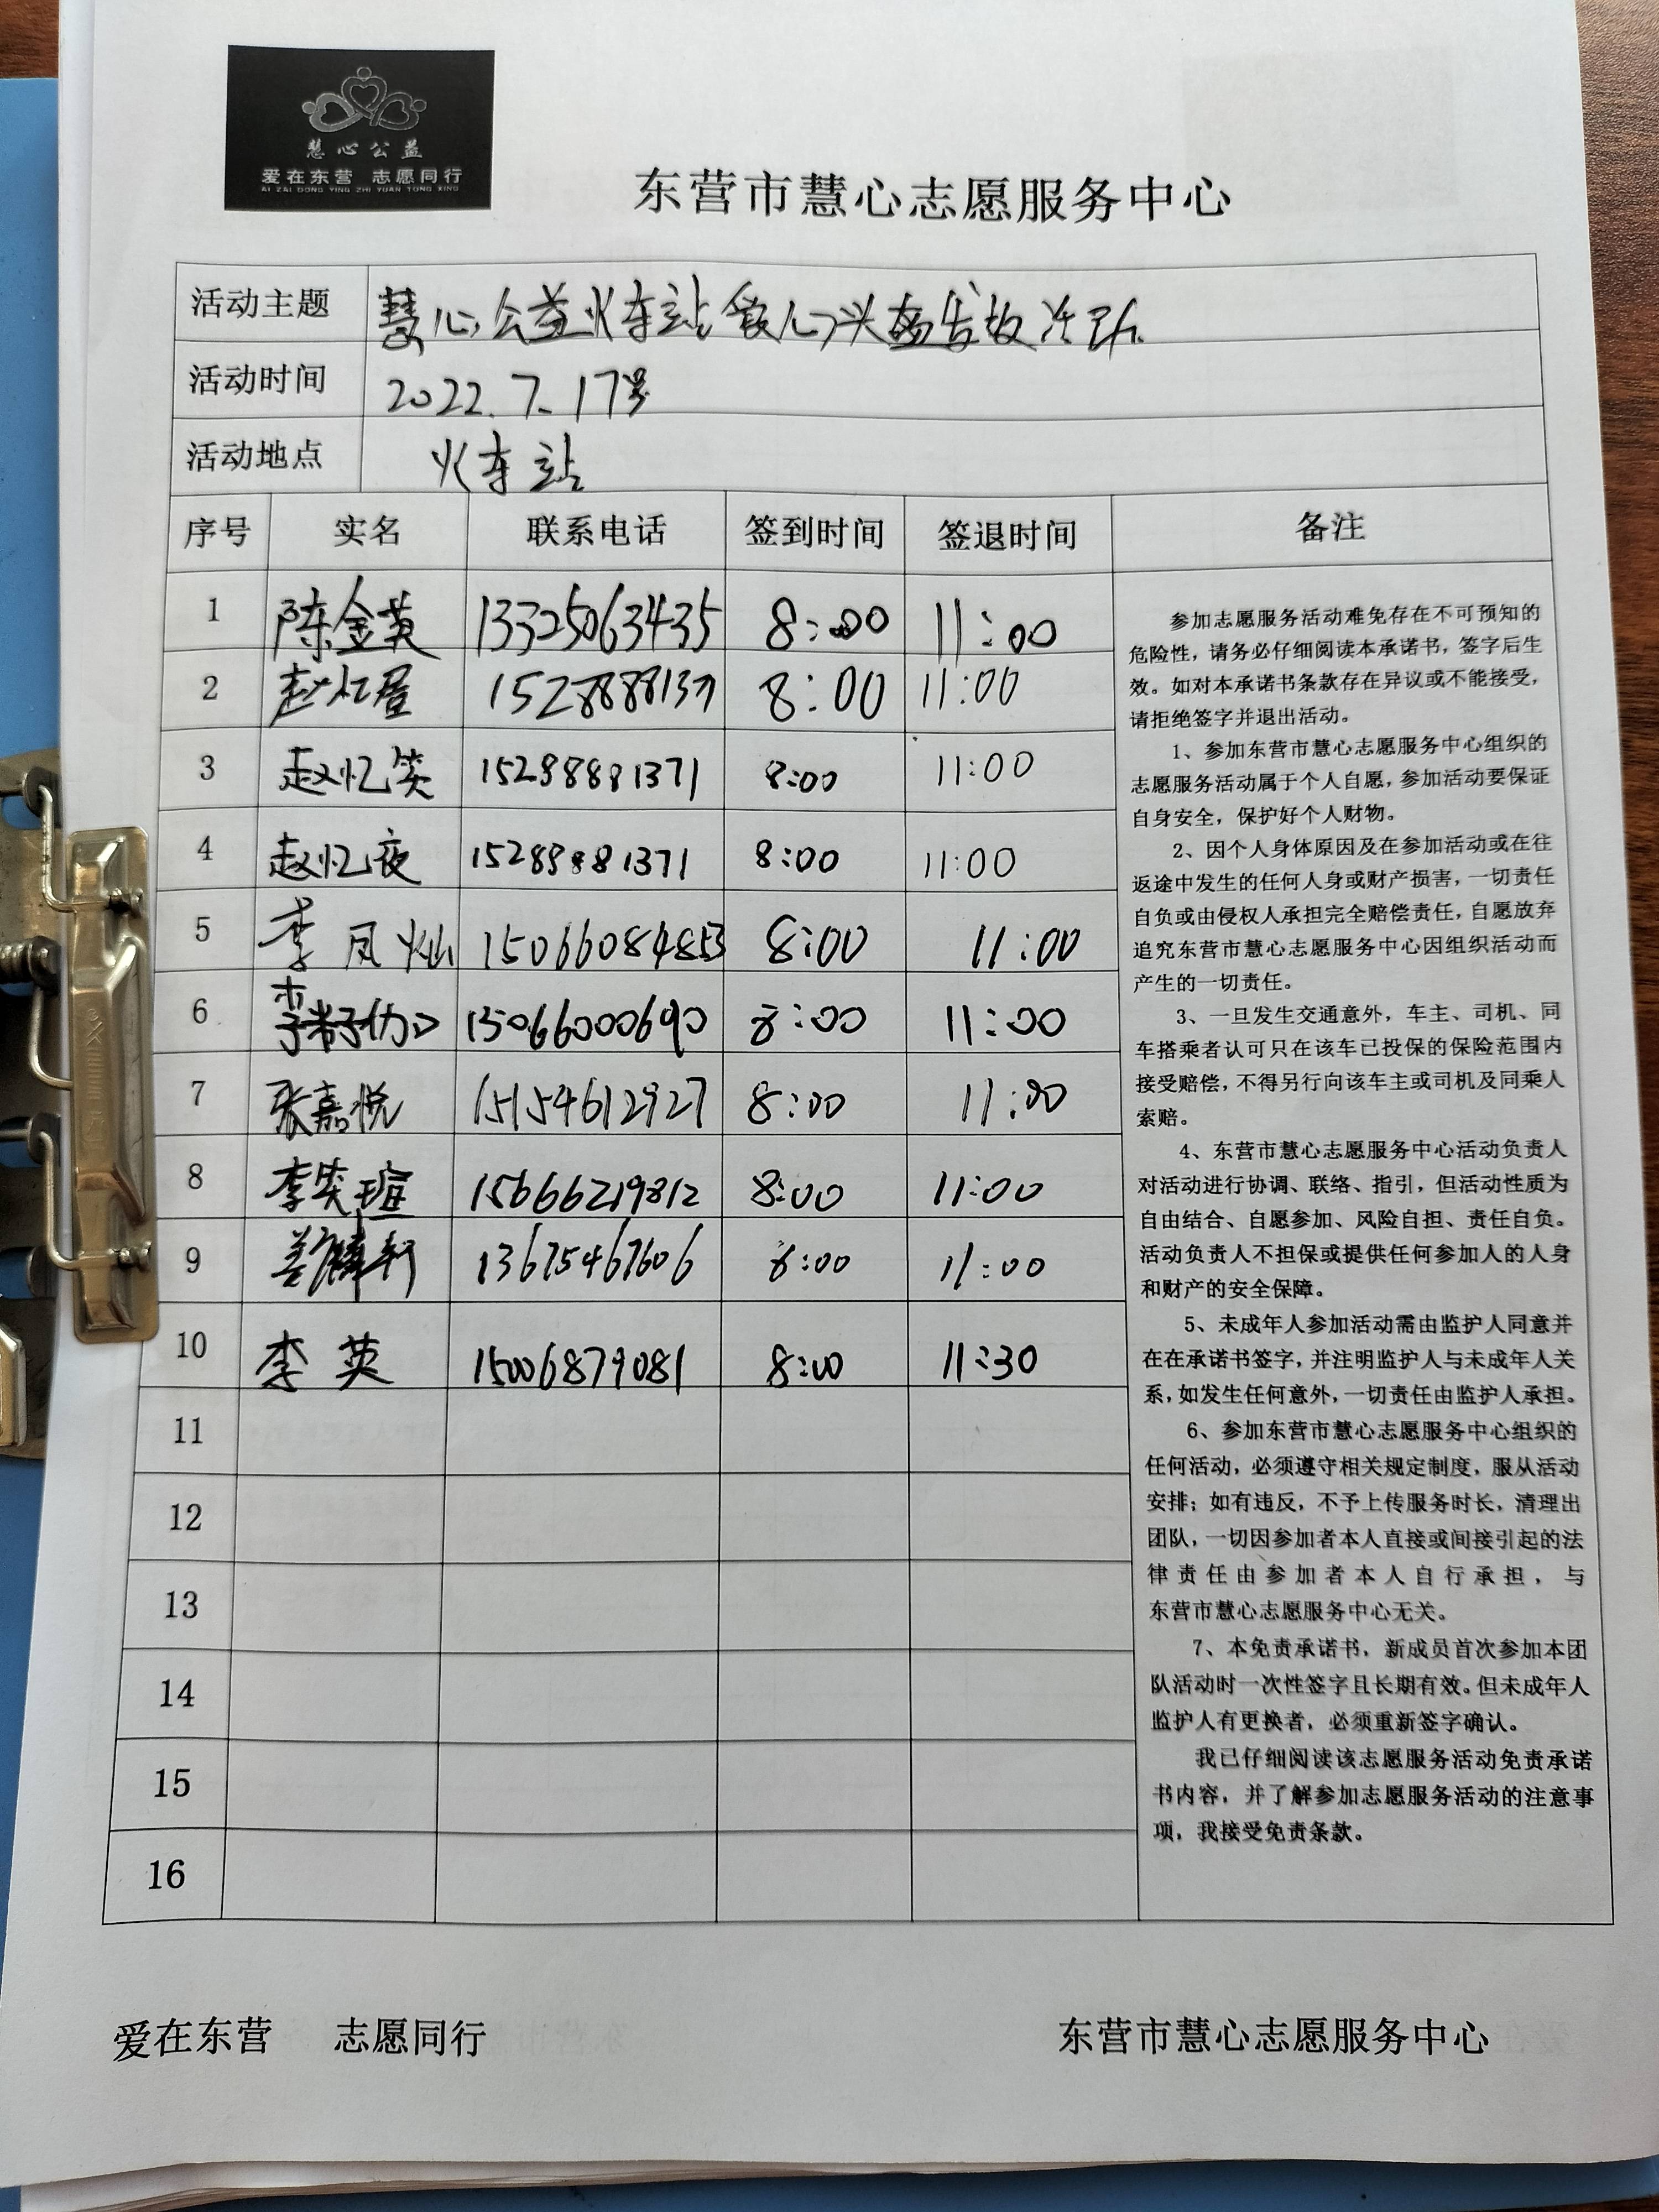 慧心公益
爱在东营 志愿同行
AI ZAI DONG YING ZHI YUAN TONG XING
东营市慧心志愿服务中心
活动主题 慧心公益火车站
活动时间 2022.7.17号
活动地点 火车站
序号 实名 联系电话 签到时间 签退时间 备注
1 陈金英 13325063435 8:00 11:00
2 赵忆 8:00 11:00
3 赵忆笑 15288881371 8:00 11:00
4 赵忆夜 15288881371 8:00 11:00
5 李凤灿 8:00 11:00
6 李 15066000690 8:00 11:00
7 张嘉悦 15154612927 8:00 11:00
8 李奕瑄 15666219812 8:00 11:00
9 13675467606 8:00 11:00
10 李英 15006879081 8:00 11:30
11
12
13
14
15
16
参加志愿服务活动难免存在不可预知的
危险性，请务必仔细阅读本承诺书，签字后生
效。如对本承诺书条款存在异议或不能接受，
请拒绝签字并退出活动。
1、参加东营市慧心志愿服务中心组织的
志愿服务活动属于个人自愿，参加活动要保证
自身安全，保护好个人财物。
2、因个人身体原因及在参加活动或在往
返途中发生的任何人身或财产损害，一切责任
自负或由侵权人承担完全赔偿责任，自愿放弃
追究东营市慧心志愿服务中心因组织活动而
产生的一切责任。
3、一旦发生交通意外，车主、司机、同
车搭乘者认可只在该车已投保的保险范围内
接受赔偿，不得另行向该车主或司机及同乘人
索赔。
4、东营市慧心志愿服务中心活动负责人
对活动进行协调、联络、指引，但活动性质为
自由结合、自愿参加、风险自担、责任自负。
活动负责人不担保或提供任何参加人的人身
和财产的安全保障。
5、未成年人参加活动需由监护人同意并
在在承诺书签字，并注明监护人与未成年人关
系，如发生任何意外，一切责任由监护人承担。
6、参加东营市慧心志愿服务中心组织的
任何活动，必须遵守相关规定制度，服从活动
安排；如有违反，不予上传服务时长，清理出
团队，一切因参加者本人直接或间接引起的法
律责任由参加者本人自行承担，与
东营市慧心志愿服务中心无关。
7、本免责承诺书，新成员首次参加本团
队活动时一次性签字且长期有效。但未成年人
监护人有更换者，必须重新签字确认。
我已仔细阅读该志愿服务活动免责承诺
书内容，并了解参加志愿服务活动的注意事
项，我接受免责条款。
爱在东营 志愿同行 东营市慧心志愿服务中心